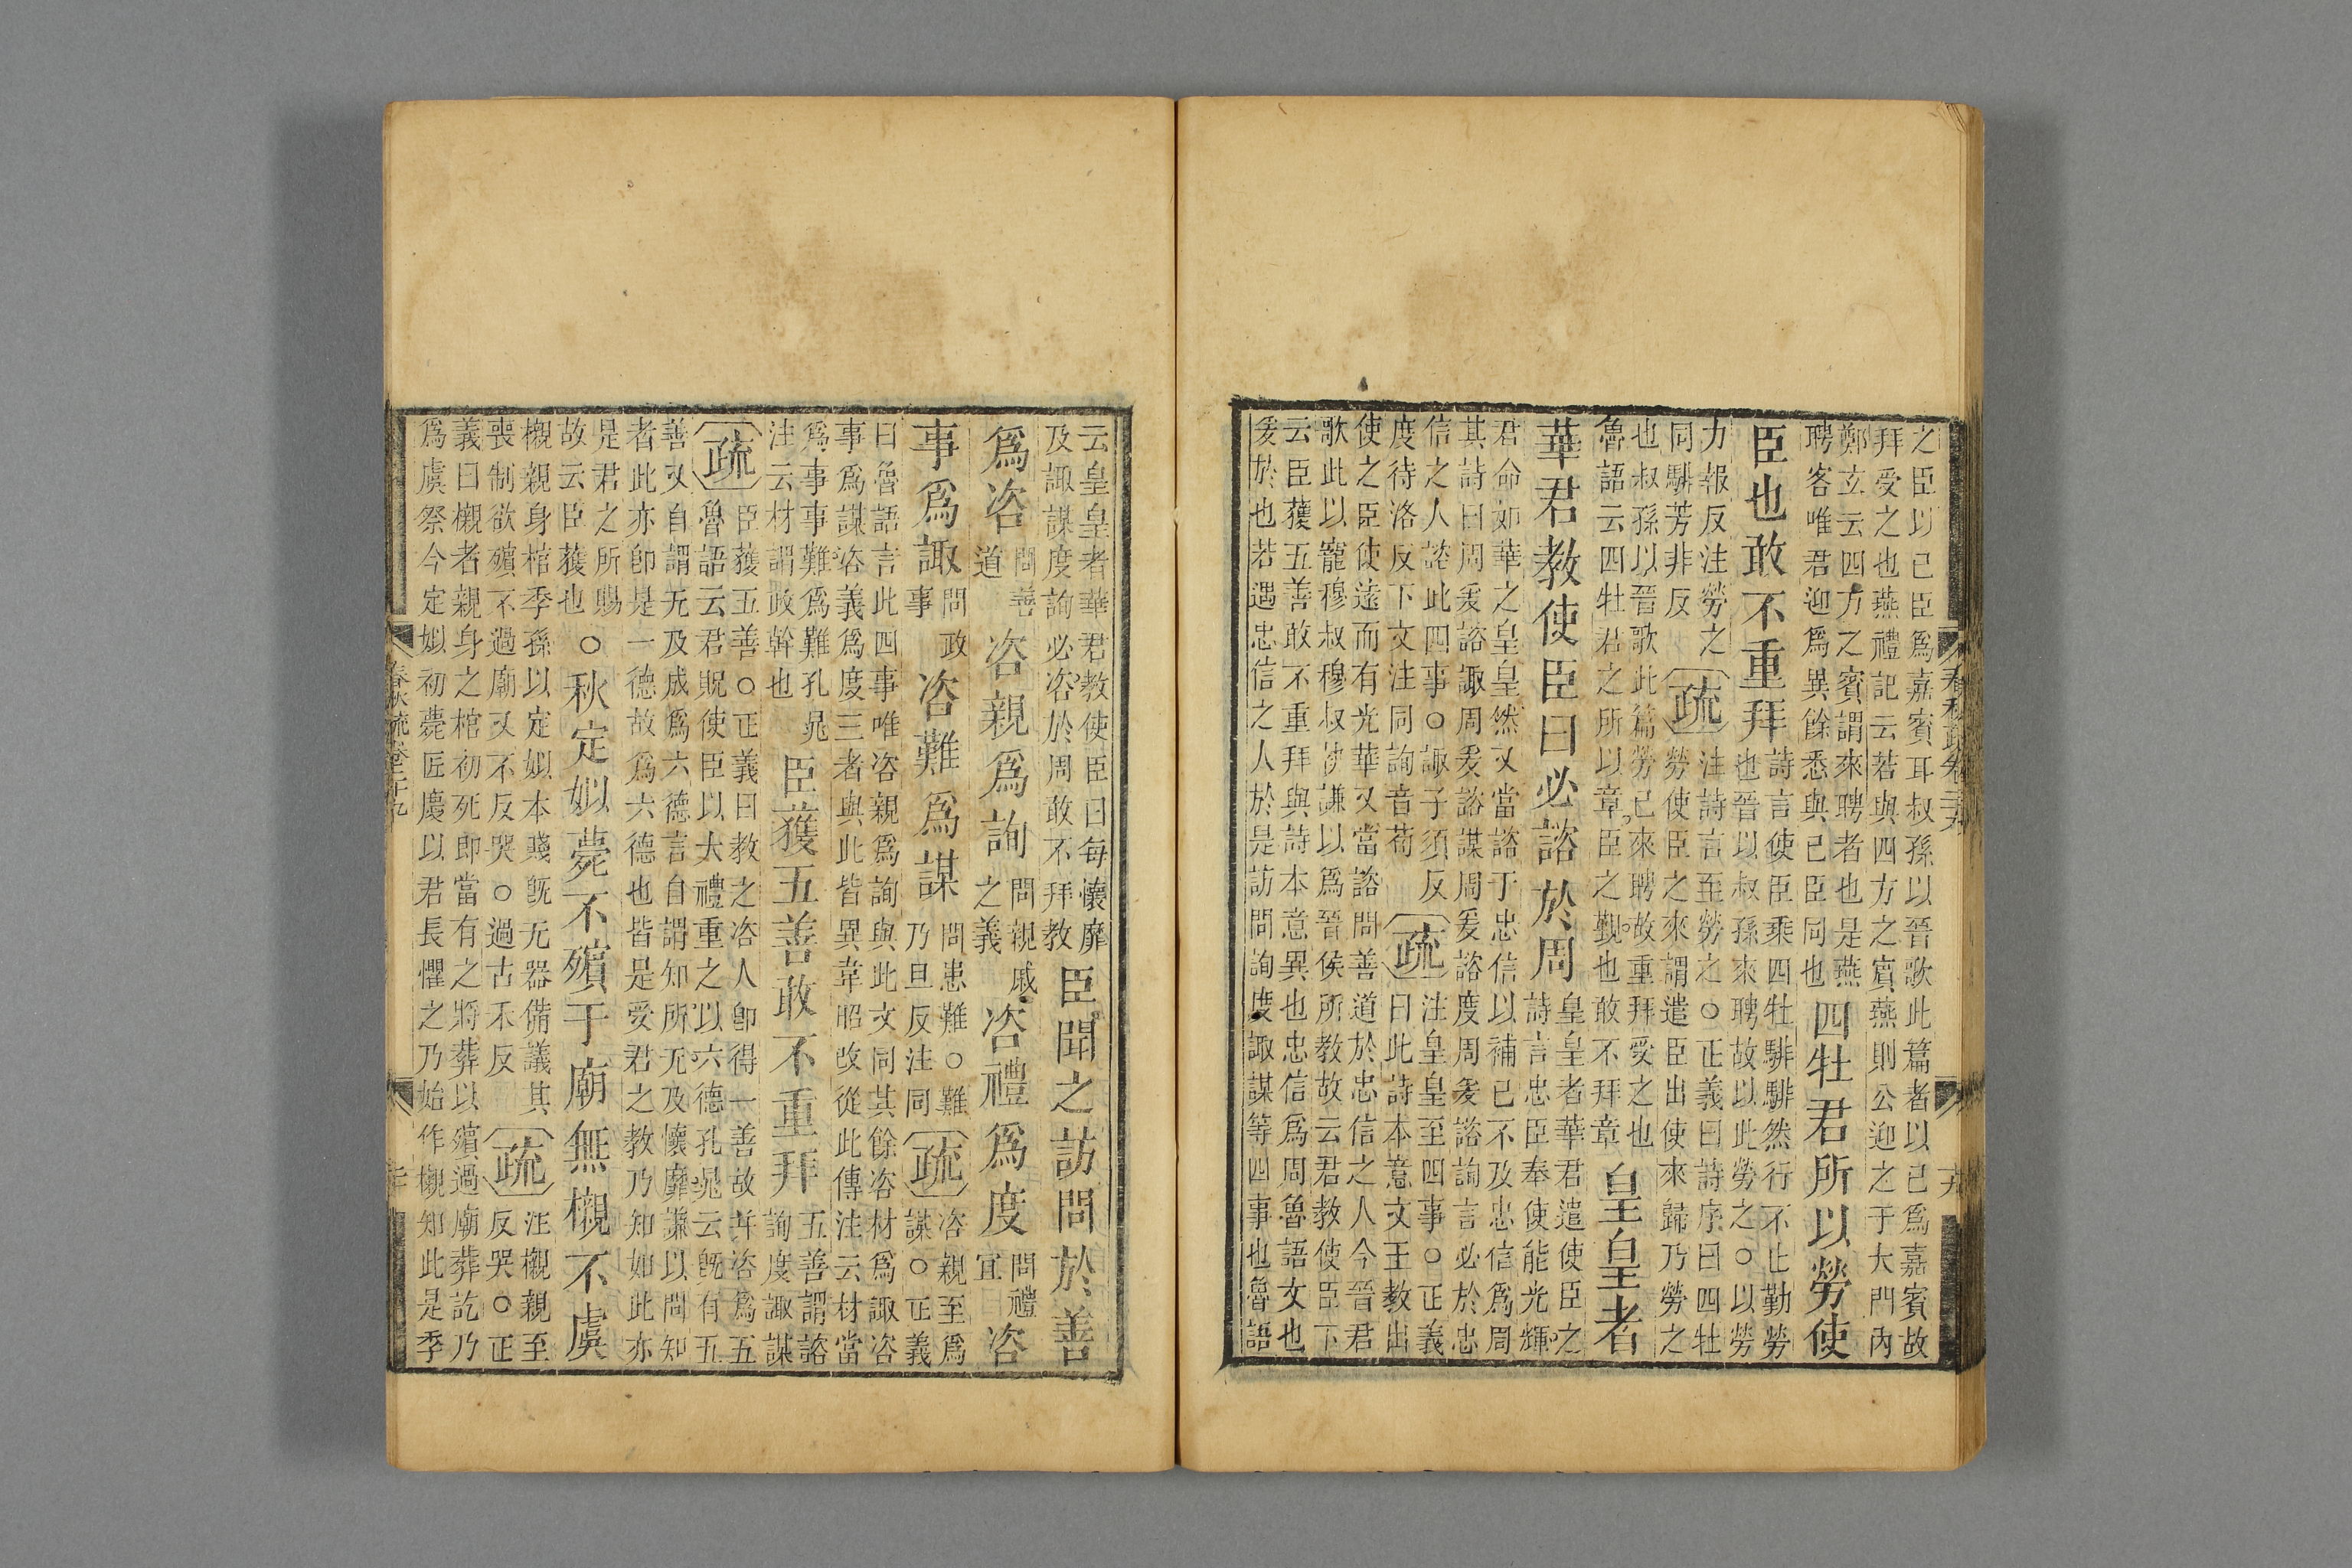 之臣以己臣爲嘉賓耳叔孫以晉歌此篇者以己爲嘉賓故
拜受之也燕禮記云若與四方之賓燕則公迎之于大門內
鄭玄云四方之賓謂來聘者也是燕
聘客唯君迎爲異餘悉與己臣同也
四牡君所以勞使
臣也敢不重拜
詩言使臣乘四牡騑騑然行不止勤勞
也晉以叔孫來聘故以此勞之○以勞
力報反注勞之
同騑芳非反
疏
注詩言至勞之○正義曰詩序曰四牡
勞使臣之來謂遣臣出使來歸乃勞之
也叔孫以晉歌此篇勞己來聘故重拜受之也
魯語云四牡君之所以章臣之勤也敢不拜章
皇皇者
華君教使臣曰必諮於周
皇皇者華君遣使臣之
詩言忠臣奉使能光輝
君命如華之皇皇然又當諮于忠信以補己不及忠信爲周
其詩曰周爰諮諏周爰諮謀周爰諮度周爰諮詢言必於忠
信之人諮此四事○諏子須反
度待洛反下文注同詢音荀
疏
注皇皇至四事○正義
曰此詩本意文王教出
使之臣使遠而有光華又當諮問善道於忠信之人今晉君
歌此以寵穆叔穆叔執謙以爲晉侯所教故云君教使臣下
云臣獲五善敢不重拜與詩本意異也忠信爲周魯語文也
爰於也若遇忠信之人於是訪問詢度諏謀等四事也魯語
云皇皇者華君教使臣曰每懷靡
及諏謀度詢必咨於周敢不拜教
臣聞之訪問於善
爲咨
問善
道
咨親爲詢
問親戚
之義
咨禮爲度
問禮
宜
咨
事爲諏
問政
事
咨難爲謀
問患難○難
乃旦反注同
疏
咨親至爲
謀○正義
曰魯語言此四事唯咨親爲詢與此文同其餘咨材爲諏咨
事爲謀咨義爲度三者與此皆異韋昭改從此傳注云材當
爲事事難爲難孔晁
注云材謂政幹也
臣獲五善敢不重拜
五善謂諮
詢度諏謀
疏
臣獲五善○正義曰教之咨人卽得一善故幷咨爲五
魯語云君貺使臣以大禮重之以六德孔晁云旣有五
善又自謂无及成爲六德言自謂知所无及懷靡謙以問知
者此亦卽是一德故爲六德也皆是受君之教乃知如此亦
是君之所賜
故云臣獲也
○秋定姒薨不殯于廟無櫬不虞
櫬親身棺季孫以定姒本賤旣无器備議其
喪制欲殯不過廟又不反哭○過古禾反
疏
注櫬親至
反哭○正
義曰櫬者親身之棺初死卽當有之將葬以殯過廟葬訖乃
爲虞祭今定姒初薨匠慶以君長懼之乃始作櫬知此是季
春秋疏卷二十九